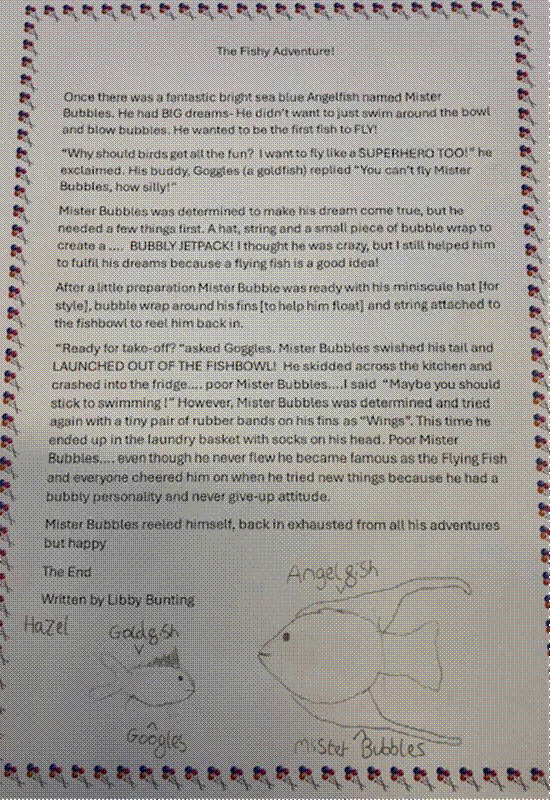 The Fishy Adventure!
Once there was a fantastic bright sea blue Angelfish named Mister
Bubbles. He had BIG dreams- He didn't want to just swim around the bowl
and blow bubbles. He wanted to be the first fish to FLY!
"Why should birds get all the fun? I want to fly like a SUPERHERO TOO!" he
exclaimed. His buddy, Goggles (a goldfish) replied "You can't fly Mister
Bubbles, how silly!"
Mister Bubbles was determined to make his dream come true, but he
needed a few things first. A hat, string and a small piece of bubble wrap to
create a .... BUBBLY JETPACK! I thought he was crazy, but I still helped him
to fulfil his dreams because a flying fish is a good idea!
After a little preparation Mister Bubble was ready with his miniscule hat [for
style], bubble wrap around his fins [to help him float] and string attached to
the fishbowl to reel him back in.
"Ready for take-off? "asked Goggles. Mister Bubbles swished his tail and
LAUNCHED OUT OF THE FISHBOWL! He skidded across the kitchen and
crashed into the fridge.... poor Mister Bubbles....I said "Maybe you should
stick to swimming !" However, Mister Bubbles was determined and tried
again with a tiny pair of rubber bands on his fins as "Wings". This time he
ended up in the laundry basket with socks on his head. Poor Mister
Bubbles.... even though he never flew he became famous as the Flying Fish
and everyone cheered him on when he tried new things because he had a
bubbly personality and never give-up attitude.
Mister Bubbles reeled himself, back in exhausted from all his adventures
but happy
The End
Written by Libby Bunting
Angelfish
Hazel
Goldfish
Googles
Mister Bubbles